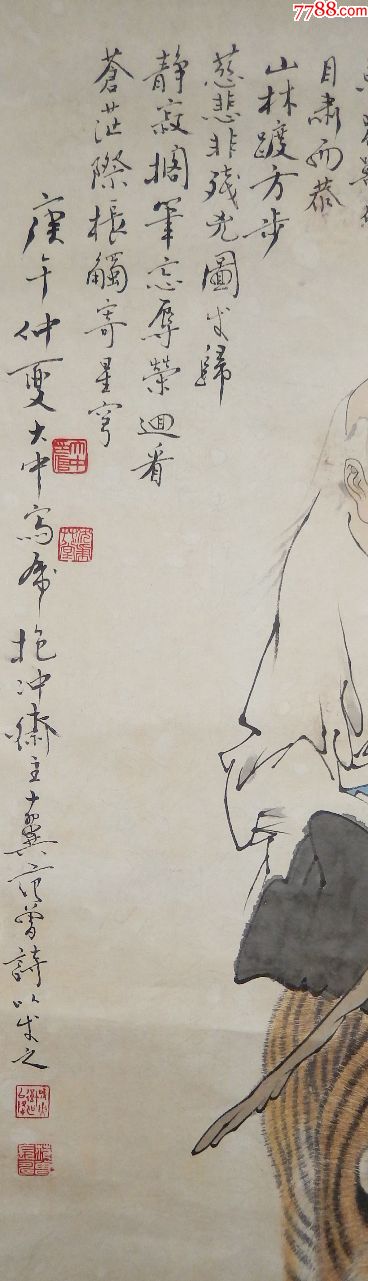 7788.com
目肅而恭
山林踱方步
慈悲非殘兇圖成歸
靜寂擱筆忘辱榮迴看
蒼茫際棖觸寄星穹
庚午仲夏大中寫虎抱冲齋主十翼范曾詩以成之